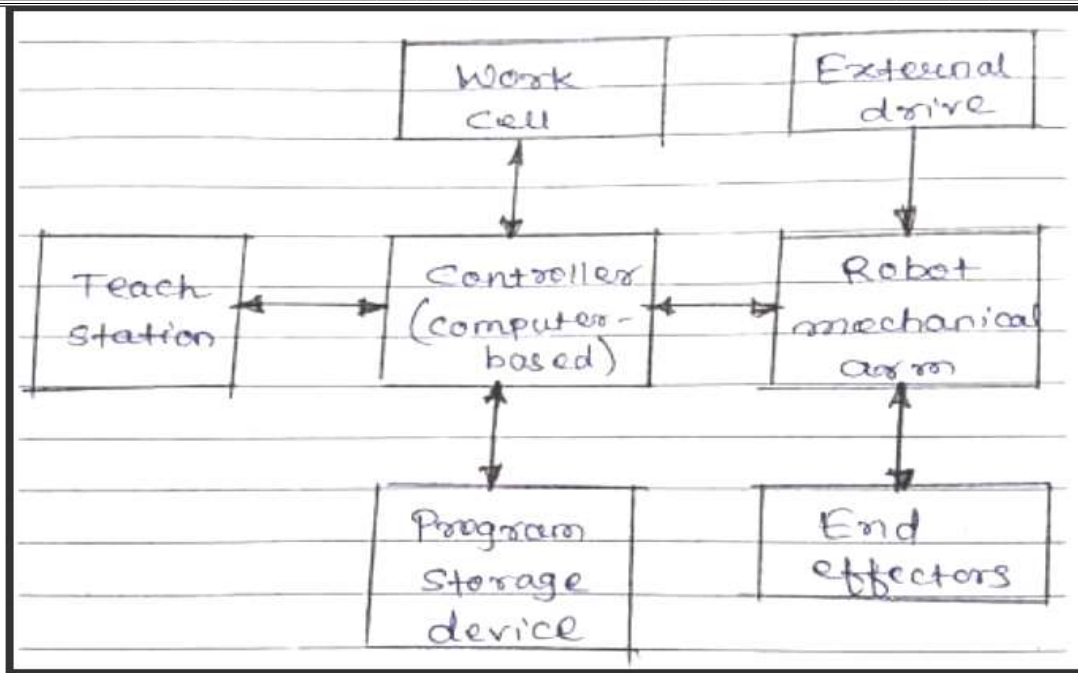 Work
Cell
External
drive
Teach
station
Controller
(computer-
based)
Robot
mechanical
arm
Program
Storage
device
End
effectors